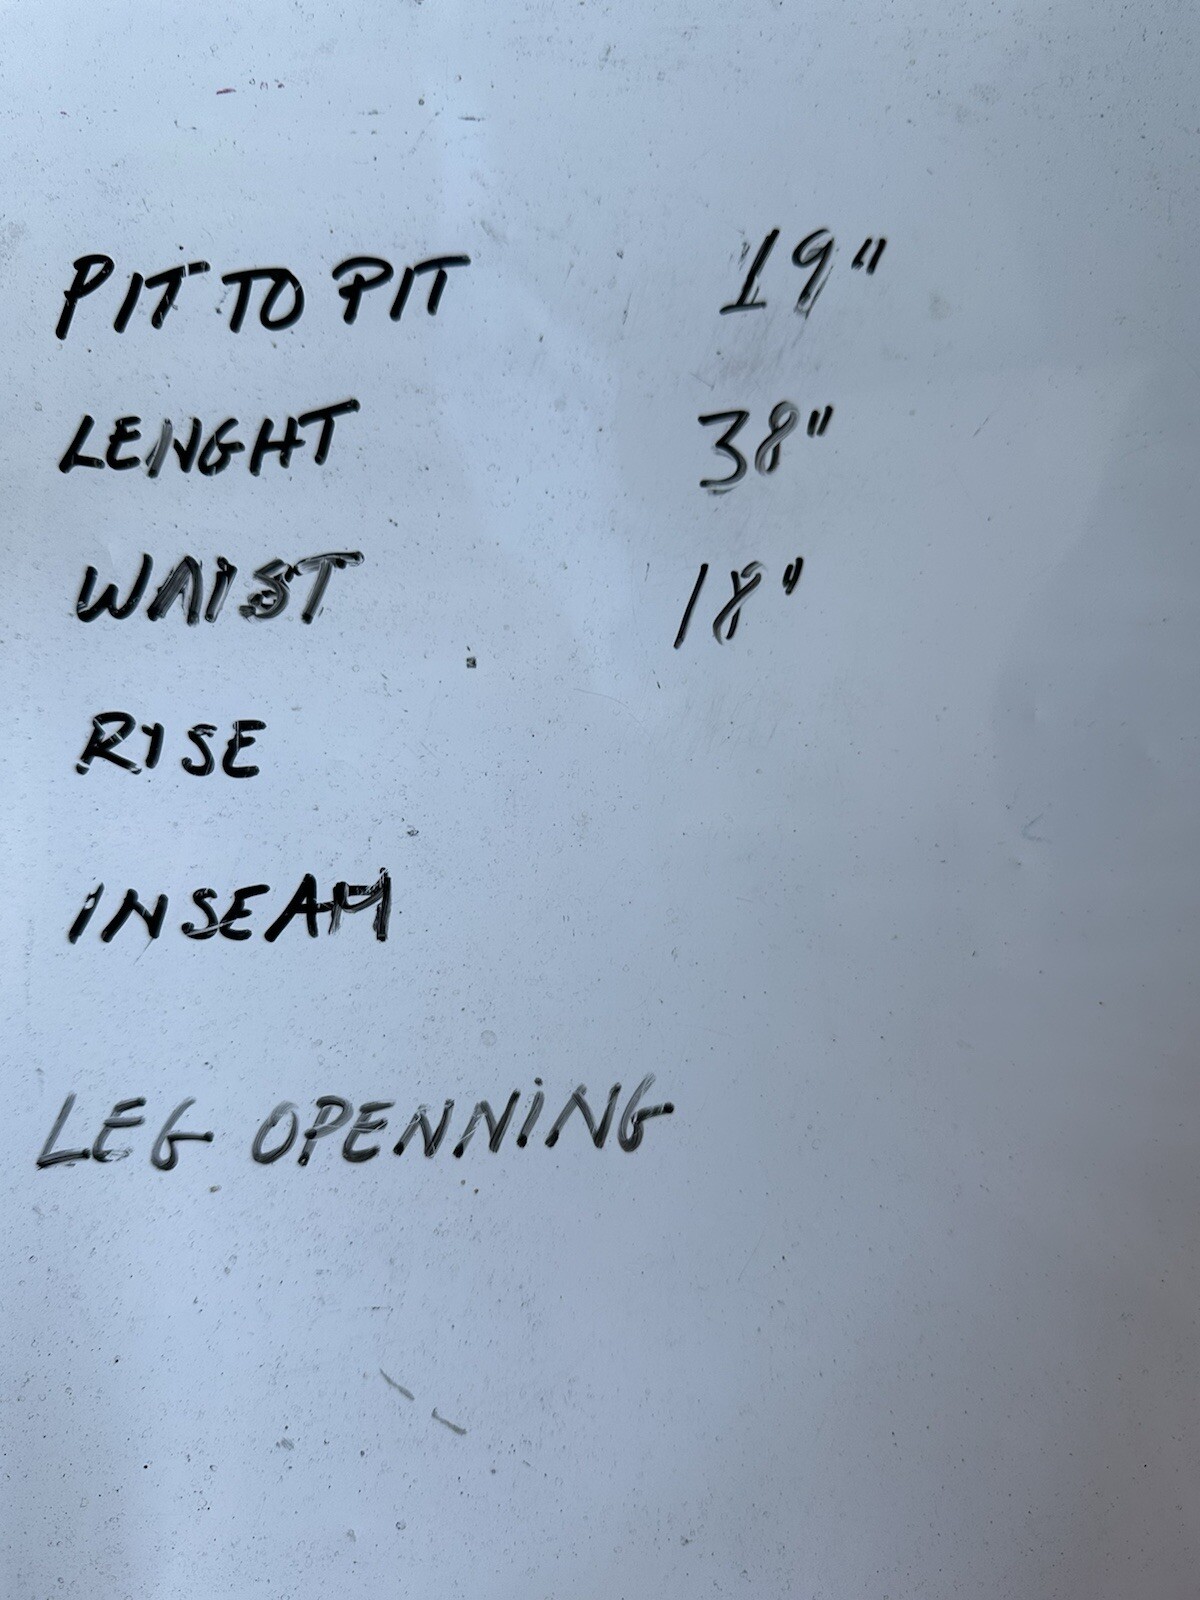 PIT TO PIT 19"
LENGHT 38"
WAIST 18"
RISE
INSEAM
LEG OPENNING